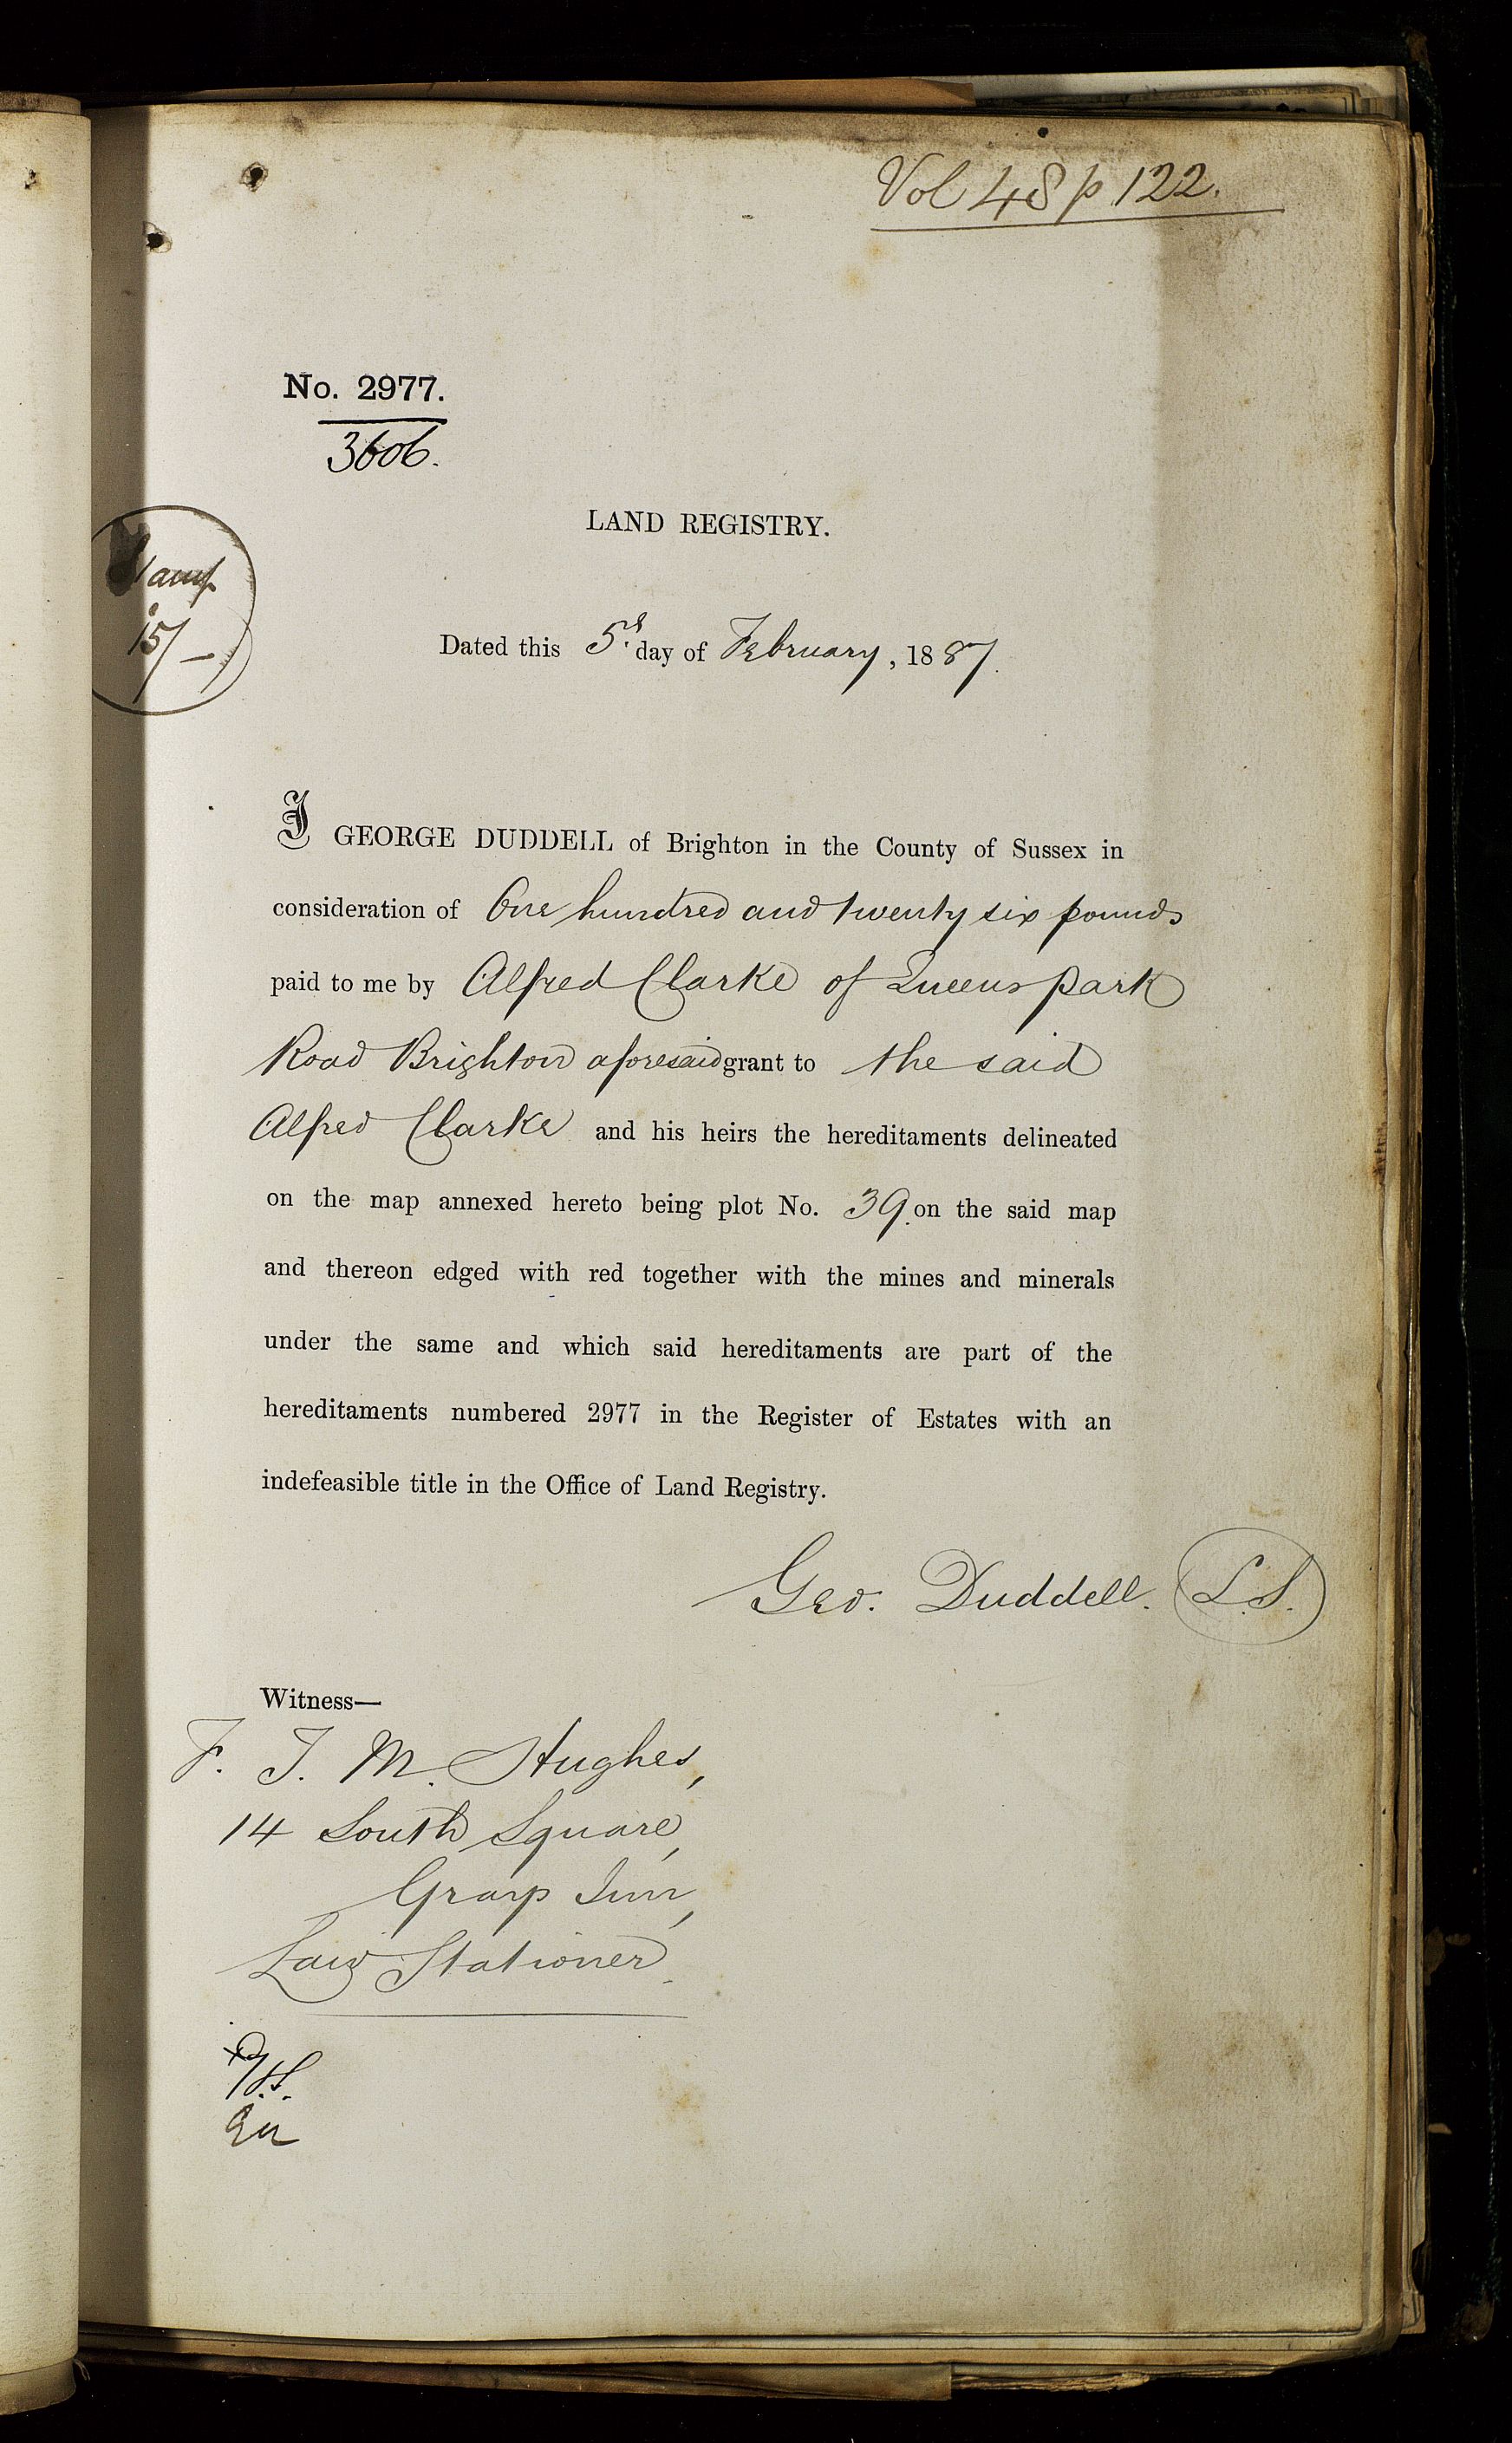 Vol 48 p 122.
No. 2977.
3606.
LAND REGISTRY.
Stamp
15/-
Dated this 5th day of February, 1887.
I GEORGE DUDDELL of Brighton in the County of Sussex in
consideration of One hundred and twenty six pounds
paid to me by Alfred Clarke of Queens Park
Road Brighton aforesaid grant to the said
Alfred Clarke and his heirs the hereditaments delineated
on the map annexed hereto being plot No. 39 on the said map
and thereon edged with red together with the mines and minerals
under the same and which said hereditaments are part of the
hereditaments numbered 2977 in the Register of Estates with an
indefeasible title in the Office of Land Registry.
Geo. Duddell. L.S.
Witness—
F. J. M. Hughes,
14 South Square,
Grays Inn,
Law Stationer.